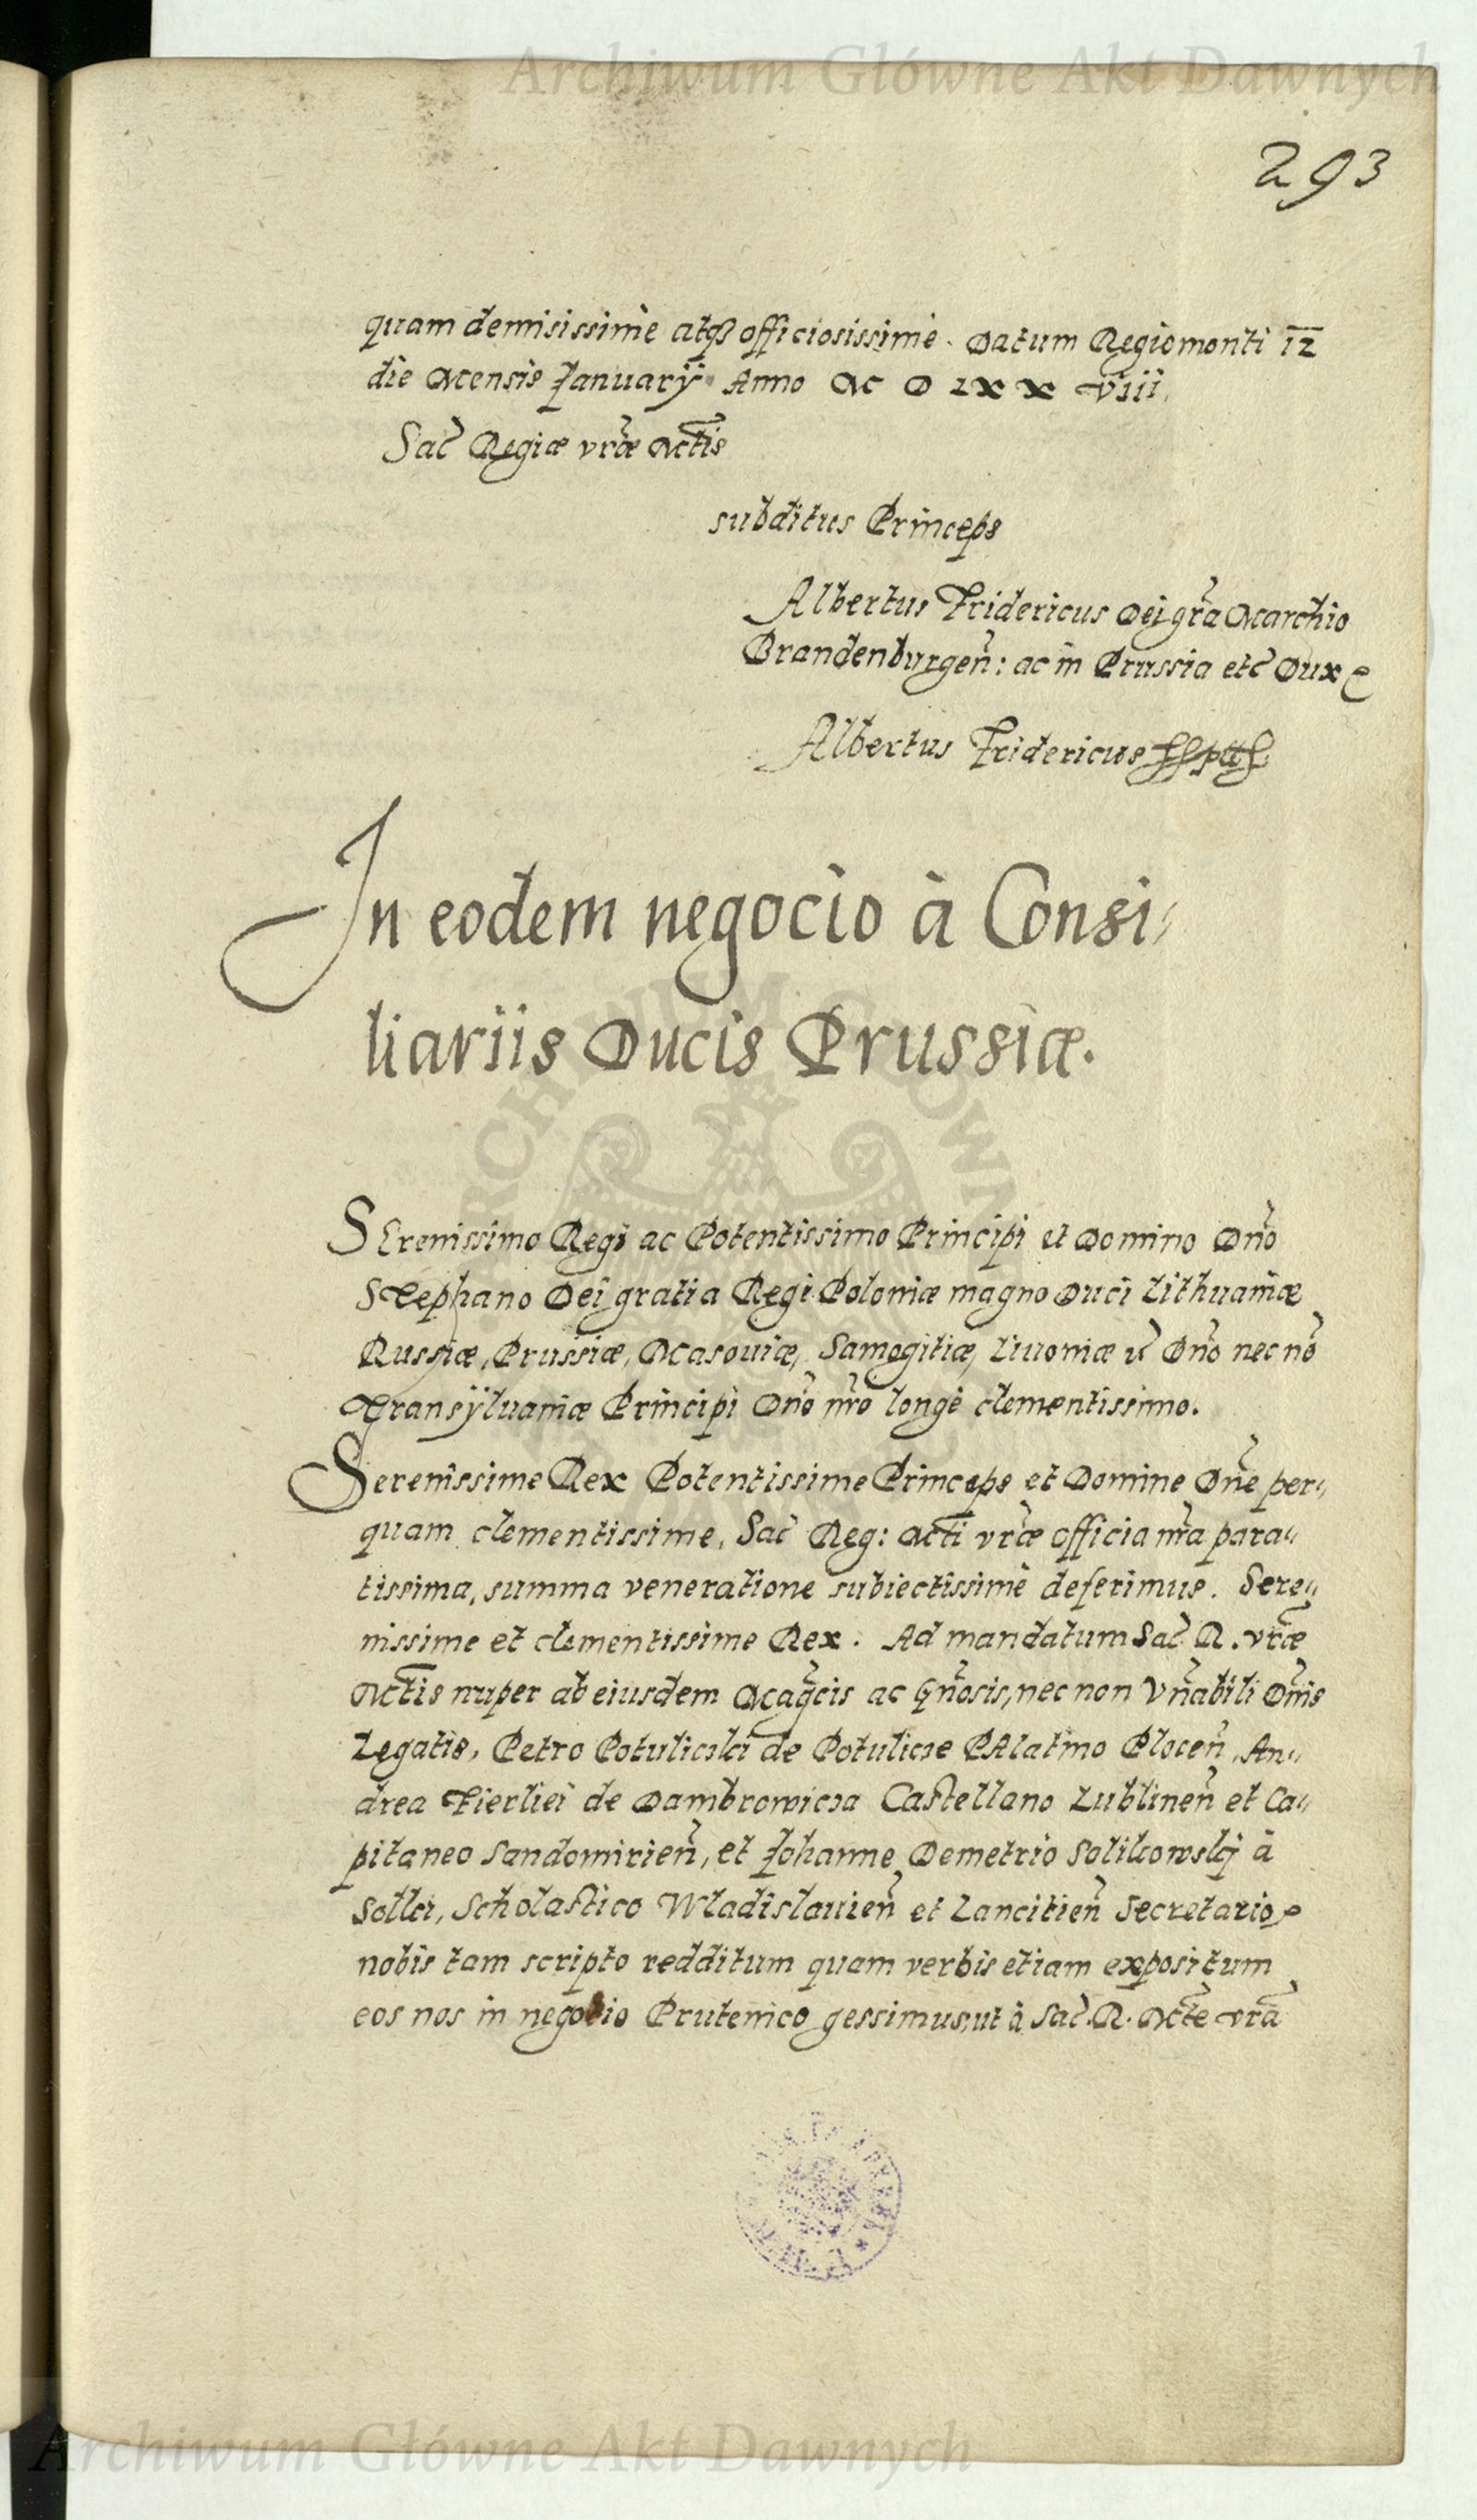 Archiwum Główne Akt Dawnych
293
quam demisissime atqȝ officiosissime. Datum Regiomonti 12
die Mensis Januarÿ Anno M D LXX viii.
Sac̃ Regiæ vr̃æ Mtis
subditus Princeps
Albertus Fridericus Dei gr̃a Marchio
Brandenburgeñ: ac in Prussia etc̃ Dux
Albertus Fridericus
In eodem negocio à Consi„
liariis Ducis Prussiæ.
SErenissimo Regi ac Potentissimo Principi et Domino Dño
Stephano Dei gratia Regi Poloniæ magno Duci Lithuaniæ
Russiæ, Prussiæ, Masouiæ, Samogitiæ, Liuoniæ et̃ Dño nec nõ
Transÿluaniæ Principi Dño nr̃o longè clementissimo.
Serenissime Rex Potentissime Princeps et Domine Dñe per„
quam clementissime, Sac̃ Reg: Mti vr̃æ officia nr̃a para„
tissima, summa veneratione subiectissimè deferimus. Sere„
nissime et clementissime Rex. Ad mandatum Sac̃ R. vr̃æ
Mtis nuper ab eiusdem Mag̃cis ac Gñosis, nec non Vñabili Dñis
Legatis, Petro Potulicski de Potulicze PAlatino Ploceñ, An„
drea Fierliei de Dambrowicza Castellano Lublineñ et Ca„
pitaneo Sandomirieñ, et Johanne Demetrio Solikowskÿ à
Solki, Scholastico Wladislauieñ et Lancitieñ Secretario
nobis tam scripto redditum quam verbis etiam expositum
eos nos in negotio Prutenico gessimus, ut à Sac̃. R. Mte vr̃a
Archiwum Główne Akt Dawnych